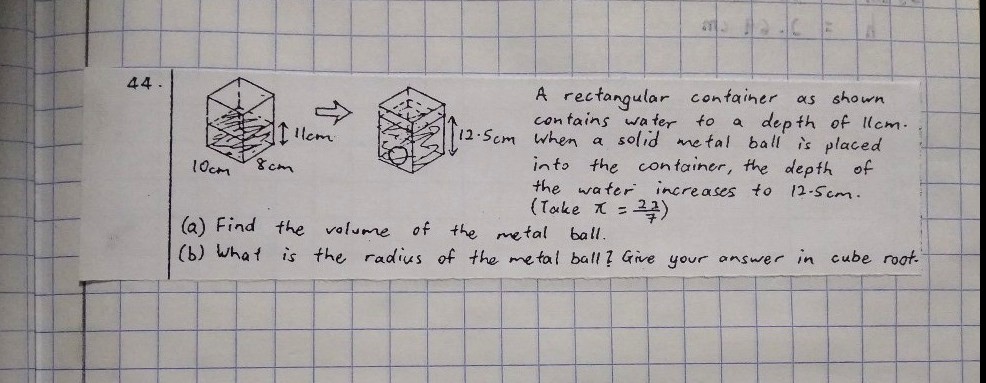 44.
11cm
10cm
8cm
12.5cm
A rectangular container as shown
contains water to a depth of 11cm.
When a solid metal ball is placed
into the container, the depth of
the water increases to 12.5cm.
(Take π = 22/7)
(a) Find the volume of the metal ball.
(b) What is the radius of the metal ball? Give your answer in cube root.